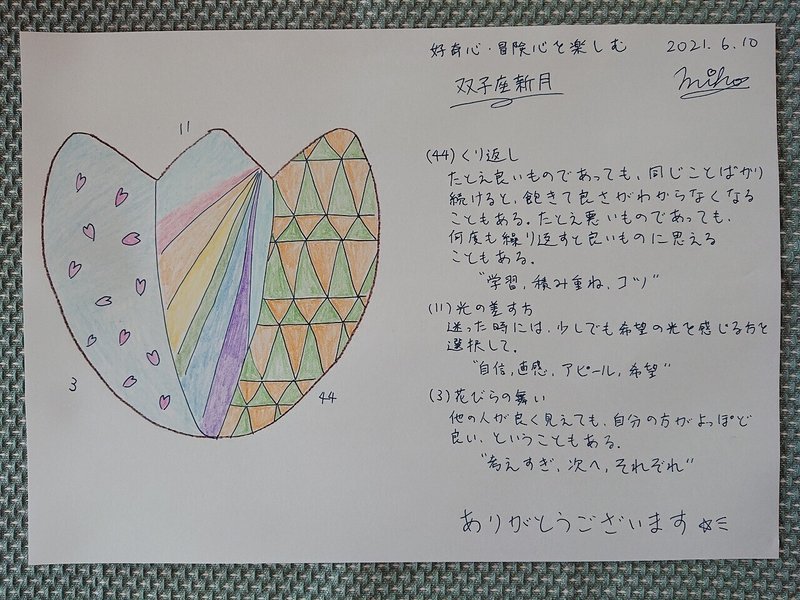 好奇心・冒険心を楽しむ 2021.6.10
双子座新月 miho
(44) くり返し
たとえ良いものであっても、同じことばかり
続けると、飽きて良さがわからなくなる
こともある。たとえ悪いものであっても、
何度も繰り返すと良いものに思える
こともある。
"学習、積み重ね、コツ"
(11) 光の差す方
迷った時には、少しでも希望の光を感じる方を
選択して。
"自信、直感、アピール、希望"
(3) 花びらの舞い
他の人が良く見えても、自分の方がよっぽど
良い、ということもある。
"考えすぎ、次へ、それぞれ"
ありがとうございます
11
3
44